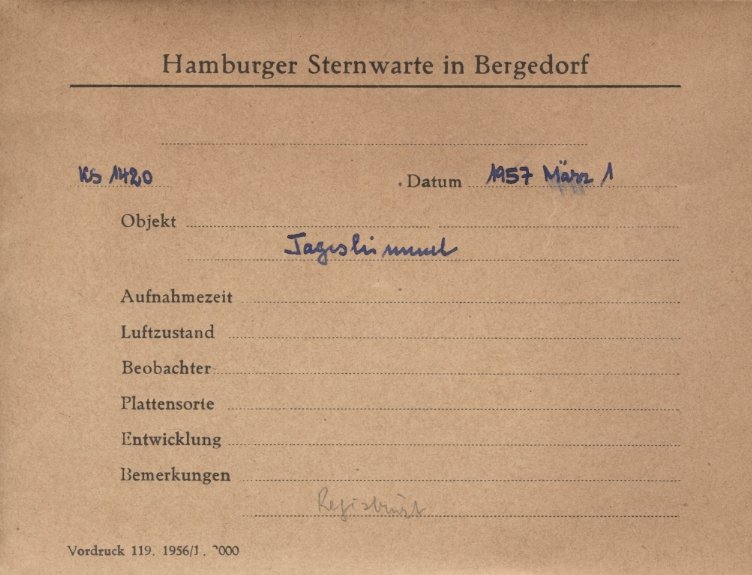 Hamburger Sternwarte in Bergedorf
KS 1420 Datum 1957 März 1
Objekt
Tageshimmel
Aufnahmezeit
Luftzustand
Beobachter
Plattensorte
Entwicklung
Bemerkungen
Registriert
Vordruck 119. 1956/1. 2000